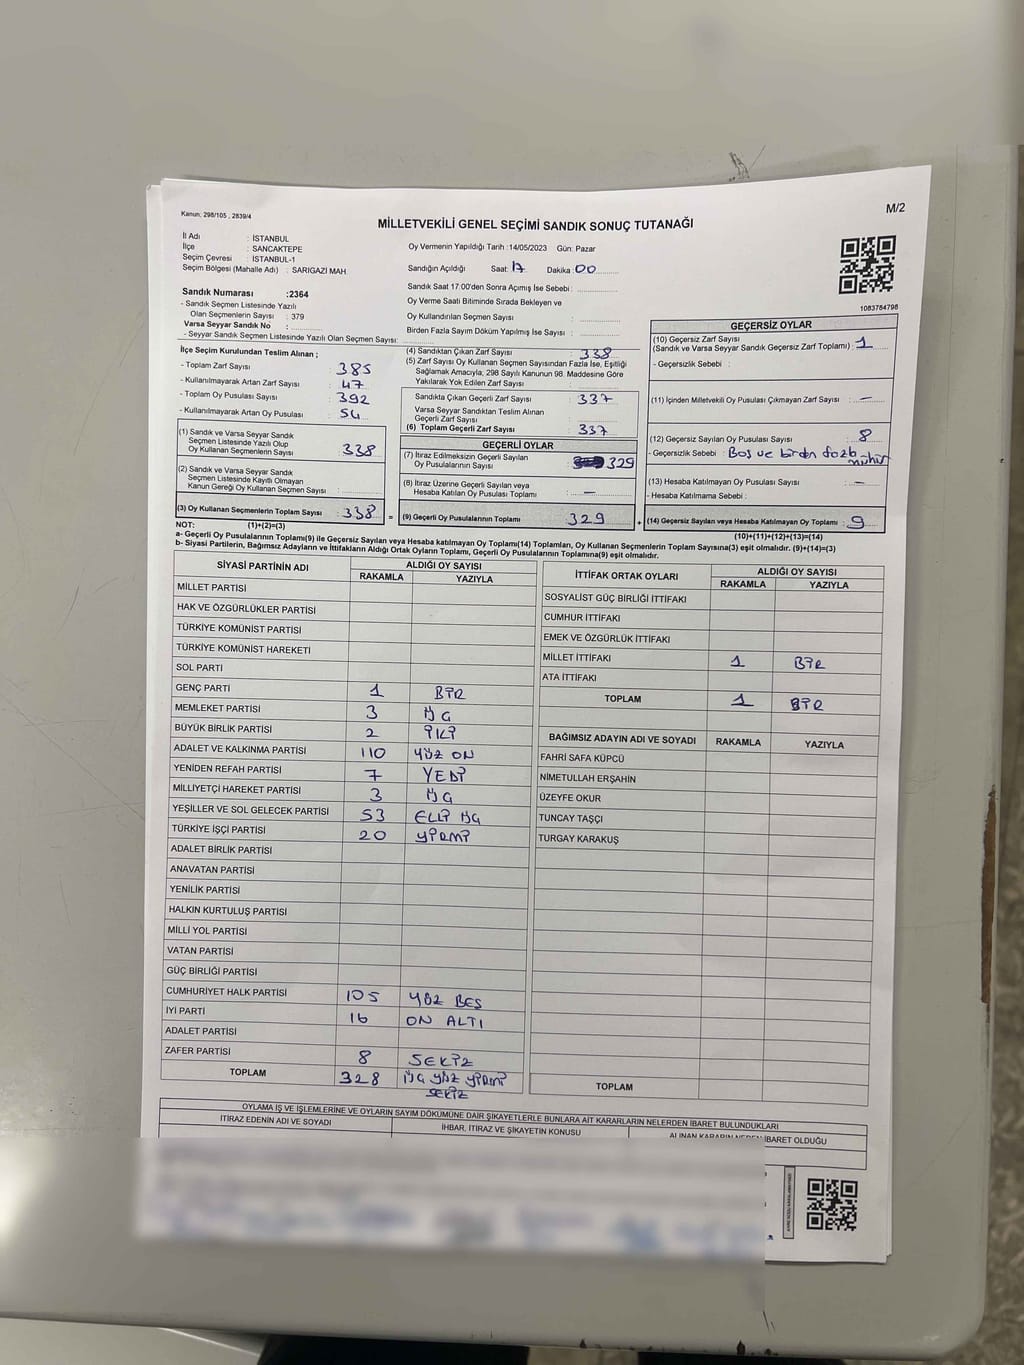 Kanun; 298/105 , 2839/4
M/2
MİLLETVEKİLİ GENEL SEÇİMİ SANDIK SONUÇ TUTANAĞI
İl Adı : İSTANBUL
İlçe : SANCAKTEPE
Seçim Çevresi : İSTANBUL-1
Seçim Bölgesi (Mahalle Adı) : SARIGAZİ MAH.
Oy Vermenin Yapıldığı Tarih :14/05/2023 Gün: Pazar
Sandığın Açıldığı Saat: 17 Dakika : 00
Sandık Saat 17:00'den Sonra Açımış İse Sebebi :
Oy Verme Saati Bitiminde Sırada Bekleyen ve
Oy Kullandırılan Seçmen Sayısı :
Birden Fazla Sayım Döküm Yapılmış İse Sayısı :
Sandık Numarası :2364
- Sandık Seçmen Listesinde Yazılı
Olan Seçmenlerin Sayısı : 379
Varsa Seyyar Sandık No :
- Seyyar Sandık Seçmen Listesinde Yazılı Olan Seçmen Sayısı:
1083784798
İlçe Seçim Kurulundan Teslim Alınan ;
- Toplam Zarf Sayısı : 385
- Kullanılmayarak Artan Zarf Sayısı : 47
- Toplam Oy Pusulası Sayısı : 392
- Kullanılmayarak Artan Oy Pusulası : 54
(1) Sandık ve Varsa Seyyar Sandık
Seçmen Listesinde Yazılı Olup
Oy Kullanan Seçmenlerin Sayısı : 338
(2) Sandık ve Varsa Seyyar Sandık
Seçmen Listesinde Kayıtlı Olmayan
Kanun Gereği Oy Kullanan Seçmen Sayısı :
(3) Oy Kullanan Seçmenlerin Toplam Sayısı : 338 =
(4) Sandıktan Çıkan Zarf Sayısı : 338
(5) Zarf Sayısı Oy Kullanan Seçmen Sayısından Fazla İse, Eşitliği
Sağlamak Amacıyla, 298 Sayılı Kanunun 98. Maddesine Göre
Yakılarak Yok Edilen Zarf Sayısı :
Sandıkta Çıkan Geçerli Zarf Sayısı : 337
Varsa Seyyar Sandıktan Teslim Alınan
Geçerli Zarf Sayısı :
(6) Toplam Geçerli Zarf Sayısı : 337
GEÇERLİ OYLAR
(7) İtiraz Edilmeksizin Geçerli Sayılan
Oy Pusulalarının Sayısı : 329
(8) İtiraz Üzerine Geçerli Sayılan veya
Hesaba Katılan Oy Pusulası Toplamı : —
(9) Geçerli Oy Pusulalarının Toplamı 329 +
GEÇERSİZ OYLAR
(10) Geçersiz Zarf Sayısı
(Sandık ve Varsa Seyyar Sandık Geçersiz Zarf Toplamı) : 1
- Geçersizlik Sebebi :
(11) İçinden Milletvekili Oy Pusulası Çıkmayan Zarf Sayısı : —
(12) Geçersiz Sayılan Oy Pusulası Sayısı : 8
- Geçersizlik Sebebi : Boş ve birden fazla
mühür
(13) Hesaba Katılmayan Oy Pusulası Sayısı : —
- Hesaba Katılmama Sebebi :
(14) Geçersiz Sayılan veya Hesaba Katılmayan Oy Toplamı : 9
NOT: (1)+(2)=(3)
(10)+(11)+(12)+(13)=(14)
a- Geçerli Oy Pusulalarının Toplamı(9) ile Geçersiz Sayılan veya Hesaba katılmayan Oy Toplamı(14) Toplamları, Oy Kullanan Seçmenlerin Toplam Sayısına(3) eşit olmalıdır. (9)+(14)=(3)
b- Siyasi Partilerin, Bağımsız Adayların ve İttifakların Aldığı Ortak Oyların Toplamı, Geçerli Oy Pusulalarının Toplamına(9) eşit olmalıdır.
SİYASİ PARTİNİN ADI
ALDIĞI OY SAYISI
RAKAMLA YAZIYLA
MİLLET PARTİSİ
HAK VE ÖZGÜRLÜKLER PARTİSİ
TÜRKİYE KOMÜNİST PARTİSİ
TÜRKİYE KOMÜNİST HAREKETİ
SOL PARTİ
GENÇ PARTİ 1 BİR
MEMLEKET PARTİSİ 3 ÜÇ
BÜYÜK BİRLİK PARTİSİ 2 İKİ
ADALET VE KALKINMA PARTİSİ 110 YÜZ ON
YENİDEN REFAH PARTİSİ 7 YEDİ
MİLLİYETÇİ HAREKET PARTİSİ 3 ÜÇ
YEŞİLLER VE SOL GELECEK PARTİSİ 53 ELLİ ÜÇ
TÜRKİYE İŞÇİ PARTİSİ 20 YİRMİ
ADALET BİRLİK PARTİSİ
ANAVATAN PARTİSİ
YENİLİK PARTİSİ
HALKIN KURTULUŞ PARTİSİ
MİLLİ YOL PARTİSİ
VATAN PARTİSİ
GÜÇ BİRLİĞİ PARTİSİ
CUMHURİYET HALK PARTİSİ 105 YÜZ BEŞ
İYİ PARTİ 16 ON ALTI
ADALET PARTİSİ
ZAFER PARTİSİ 8 SEKİZ
TOPLAM 328 ÜÇ YÜZ YİRMİ
SEKİZ
İTTİFAK ORTAK OYLARI
ALDIĞI OY SAYISI
RAKAMLA YAZIYLA
SOSYALİST GÜÇ BİRLİĞİ İTTİFAKI
CUMHUR İTTİFAKI
EMEK VE ÖZGÜRLÜK İTTİFAKI
MİLLET İTTİFAKI 1 BİR
ATA İTTİFAKI
TOPLAM 1 BİR
BAĞIMSIZ ADAYIN ADI VE SOYADI RAKAMLA YAZIYLA
FAHRİ SAFA KÜPCÜ
NİMETULLAH ERŞAHİN
ÜZEYFE OKUR
TUNCAY TAŞÇI
TURGAY KARAKUŞ
TOPLAM
OYLAMA İŞ VE İŞLEMLERİNE VE OYLARIN SAYIM DÖKÜMÜNE DAİR ŞİKAYETLERLE BUNLARA AİT KARARLARIN NELERDEN İBARET BULUNDUKLARI
İTİRAZ EDENİN ADI VE SOYADI İHBAR, İTİRAZ VE ŞİKAYETİN KONUSU ALINAN KARARIN NEDEN İBARET OLDUĞU